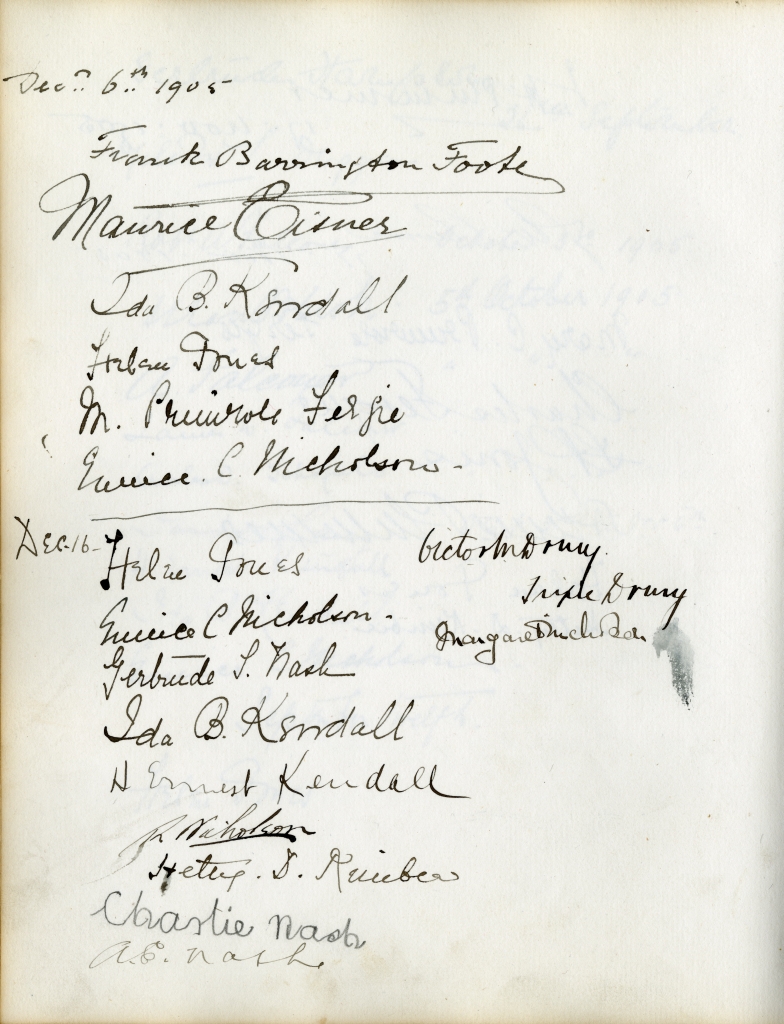 Dec.r 6.th 1905
Frank Barrington Foote
Maurice Eisner
Ida B. Kendall
Helen Jones
M. Primrose Fergie
Eunice. C. Nicholson -
Dec. 16 -
Helen Jones
Eunice C Nicholson -
Gertrude S. Nash
Ida B. Kendall
H Ernest Kendall
R Nicholson
D.
Charlie Nash
A.E. Nash.
Victor M Drury
Drury
Margaret Nicholson